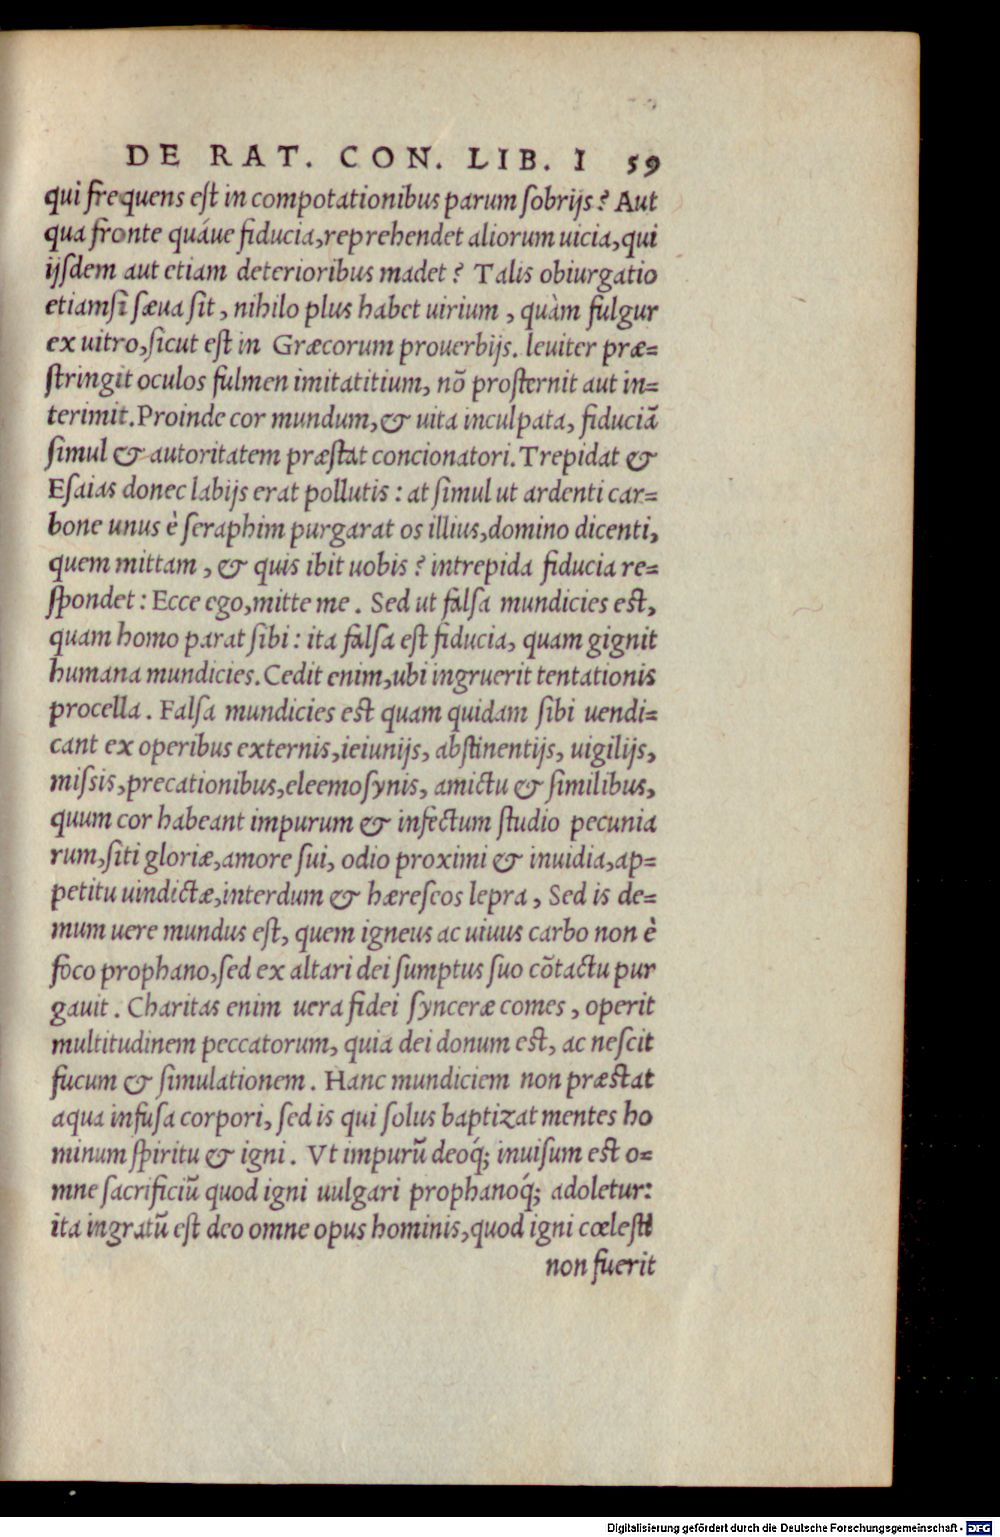 DE RAT. CON. LIB. I 59
qui frequens est in compotationibus parum sobrijs? Aut
qua fronte quáue fiducia, reprehendet aliorum uicia, qui
ijsdem aut etiam deterioribus madet? Talis obiurgatio
etiamsi sæua sit, nihilo plus habet uirium, quàm fulgur
ex uitro, sicut est in Græcorum prouerbijs. leuiter præ=
stringit oculos fulmen imitatitium, nõ prosternit aut in=
terimit. Proinde cor mundum, & uita inculpata, fiduciã
simul & autoritatem præstat concionatori. Trepidat &
Esaias donec labijs erat pollutis: at simul ut ardenti car=
bone unus è seraphim purgarat os illius, domino dicenti,
quem mittam, & quis ibit uobis? intrepida fiducia re=
spondet: Ecce ego, mitte me. Sed ut falsa mundicies est,
quam homo parat sibi: ita falsa est fiducia, quam gignit
humana mundicies. Cedit enim, ubi ingruerit tentationis
procella. Falsa mundicies est quam quidam sibi uendi=
cant ex operibus externis, ieiunijs, abstinentijs, uigilijs,
missis, precationibus, eleemosynis, amictu & similibus,
quum cor habeant impurum & infectum studio pecunia
rum, siti gloriæ, amore sui, odio proximi & inuidia, ap=
petitu uindictæ, interdum & hæreseos lepra, Sed is de=
mum uere mundus est, quem igneus ac uiuus carbo non è
foco prophano, sed ex altari dei sumptus suo cõtactu pur
gauit. Charitas enim uera fidei synceræ comes, operit
multitudinem peccatorum, quia dei donum est, ac nescit
fucum & simulationem. Hanc mundiciem non præstat
aqua infusa corpori, sed is qui solus baptizat mentes ho
minum spiritu & igni. Vt impurũ deoq́; inuisum est o=
mne sacrificiũ quod igni uulgari prophanoq́; adoletur:
ita ingratũ est deo omne opus hominis, quod igni cœlesti
non fuerit
Digitalisierung gefördert durch die Deutsche Forschungsgemeinschaft - DFG